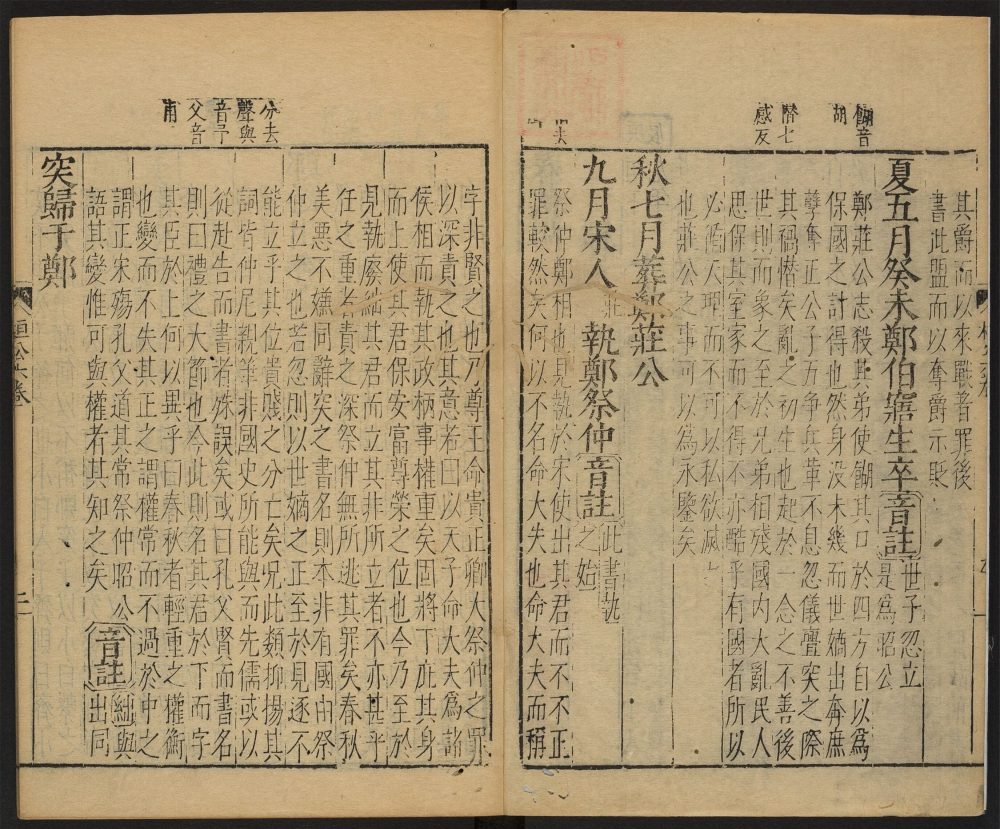 其爵而以來戰者罪後
書此盟而以奪爵示貶
夏五月癸未鄭伯寤生卒音註世子忽立是為昭公
鄭莊公志殺其弟使餬其口於四方自以為
保國之計得也然身没未幾而世嫡出奔庶
孽奪正公子五争兵革不息忽儀亹突之際
其禍憯矣亂之初生也起於一念之不善後
世則而象之至於兄弟相殘國内大亂民人
思保其室家而不得不亦酷乎有國者所以
必循天理而不可以私欲滅之
也莊公之事可以為永鑒矣
秋七月葬鄭莊公
九月宋人執鄭祭仲音註此書執之始
祭仲鄭相也見執於宋使出其君而不不正
罪較然矣何以不名命大夫也命大夫而稱
字非賢之也乃尊王命貴正卿大祭仲之罪
以深責之也其意若曰以天子命大夫為諸
侯相而執其政柄事權重矣固將下庇其身
而上使其君保安富尊榮之位也今乃至於
見執廢絀其君而立其非所立者不亦甚乎
任之重者責之深祭仲無所逃其罪矣春秋
美惡不嫌同辭突之書名則本非有國由祭
仲立之也若忽則以世嫡之正至於見逐不
能立乎其位貴賤之分亡矣凡此類抑揚其
詞皆仲尼親筆非國史所能與而先儒或以
從赴告而書者殊誤矣或曰孔父賢而書名
則曰禮之大節也今此則名其君於下而字
其臣於上何以異乎曰春秋者輕重之權衡
也變而不失其正之謂權常而不過於中之
謂正宋殤孔父道其常祭仲昭公
語其變惟可與權者其知之矣音註絀與出同
突歸于鄭
餬音
胡
憯七
感反
分去
聲與
音予
父音
甫
桓公卷
二